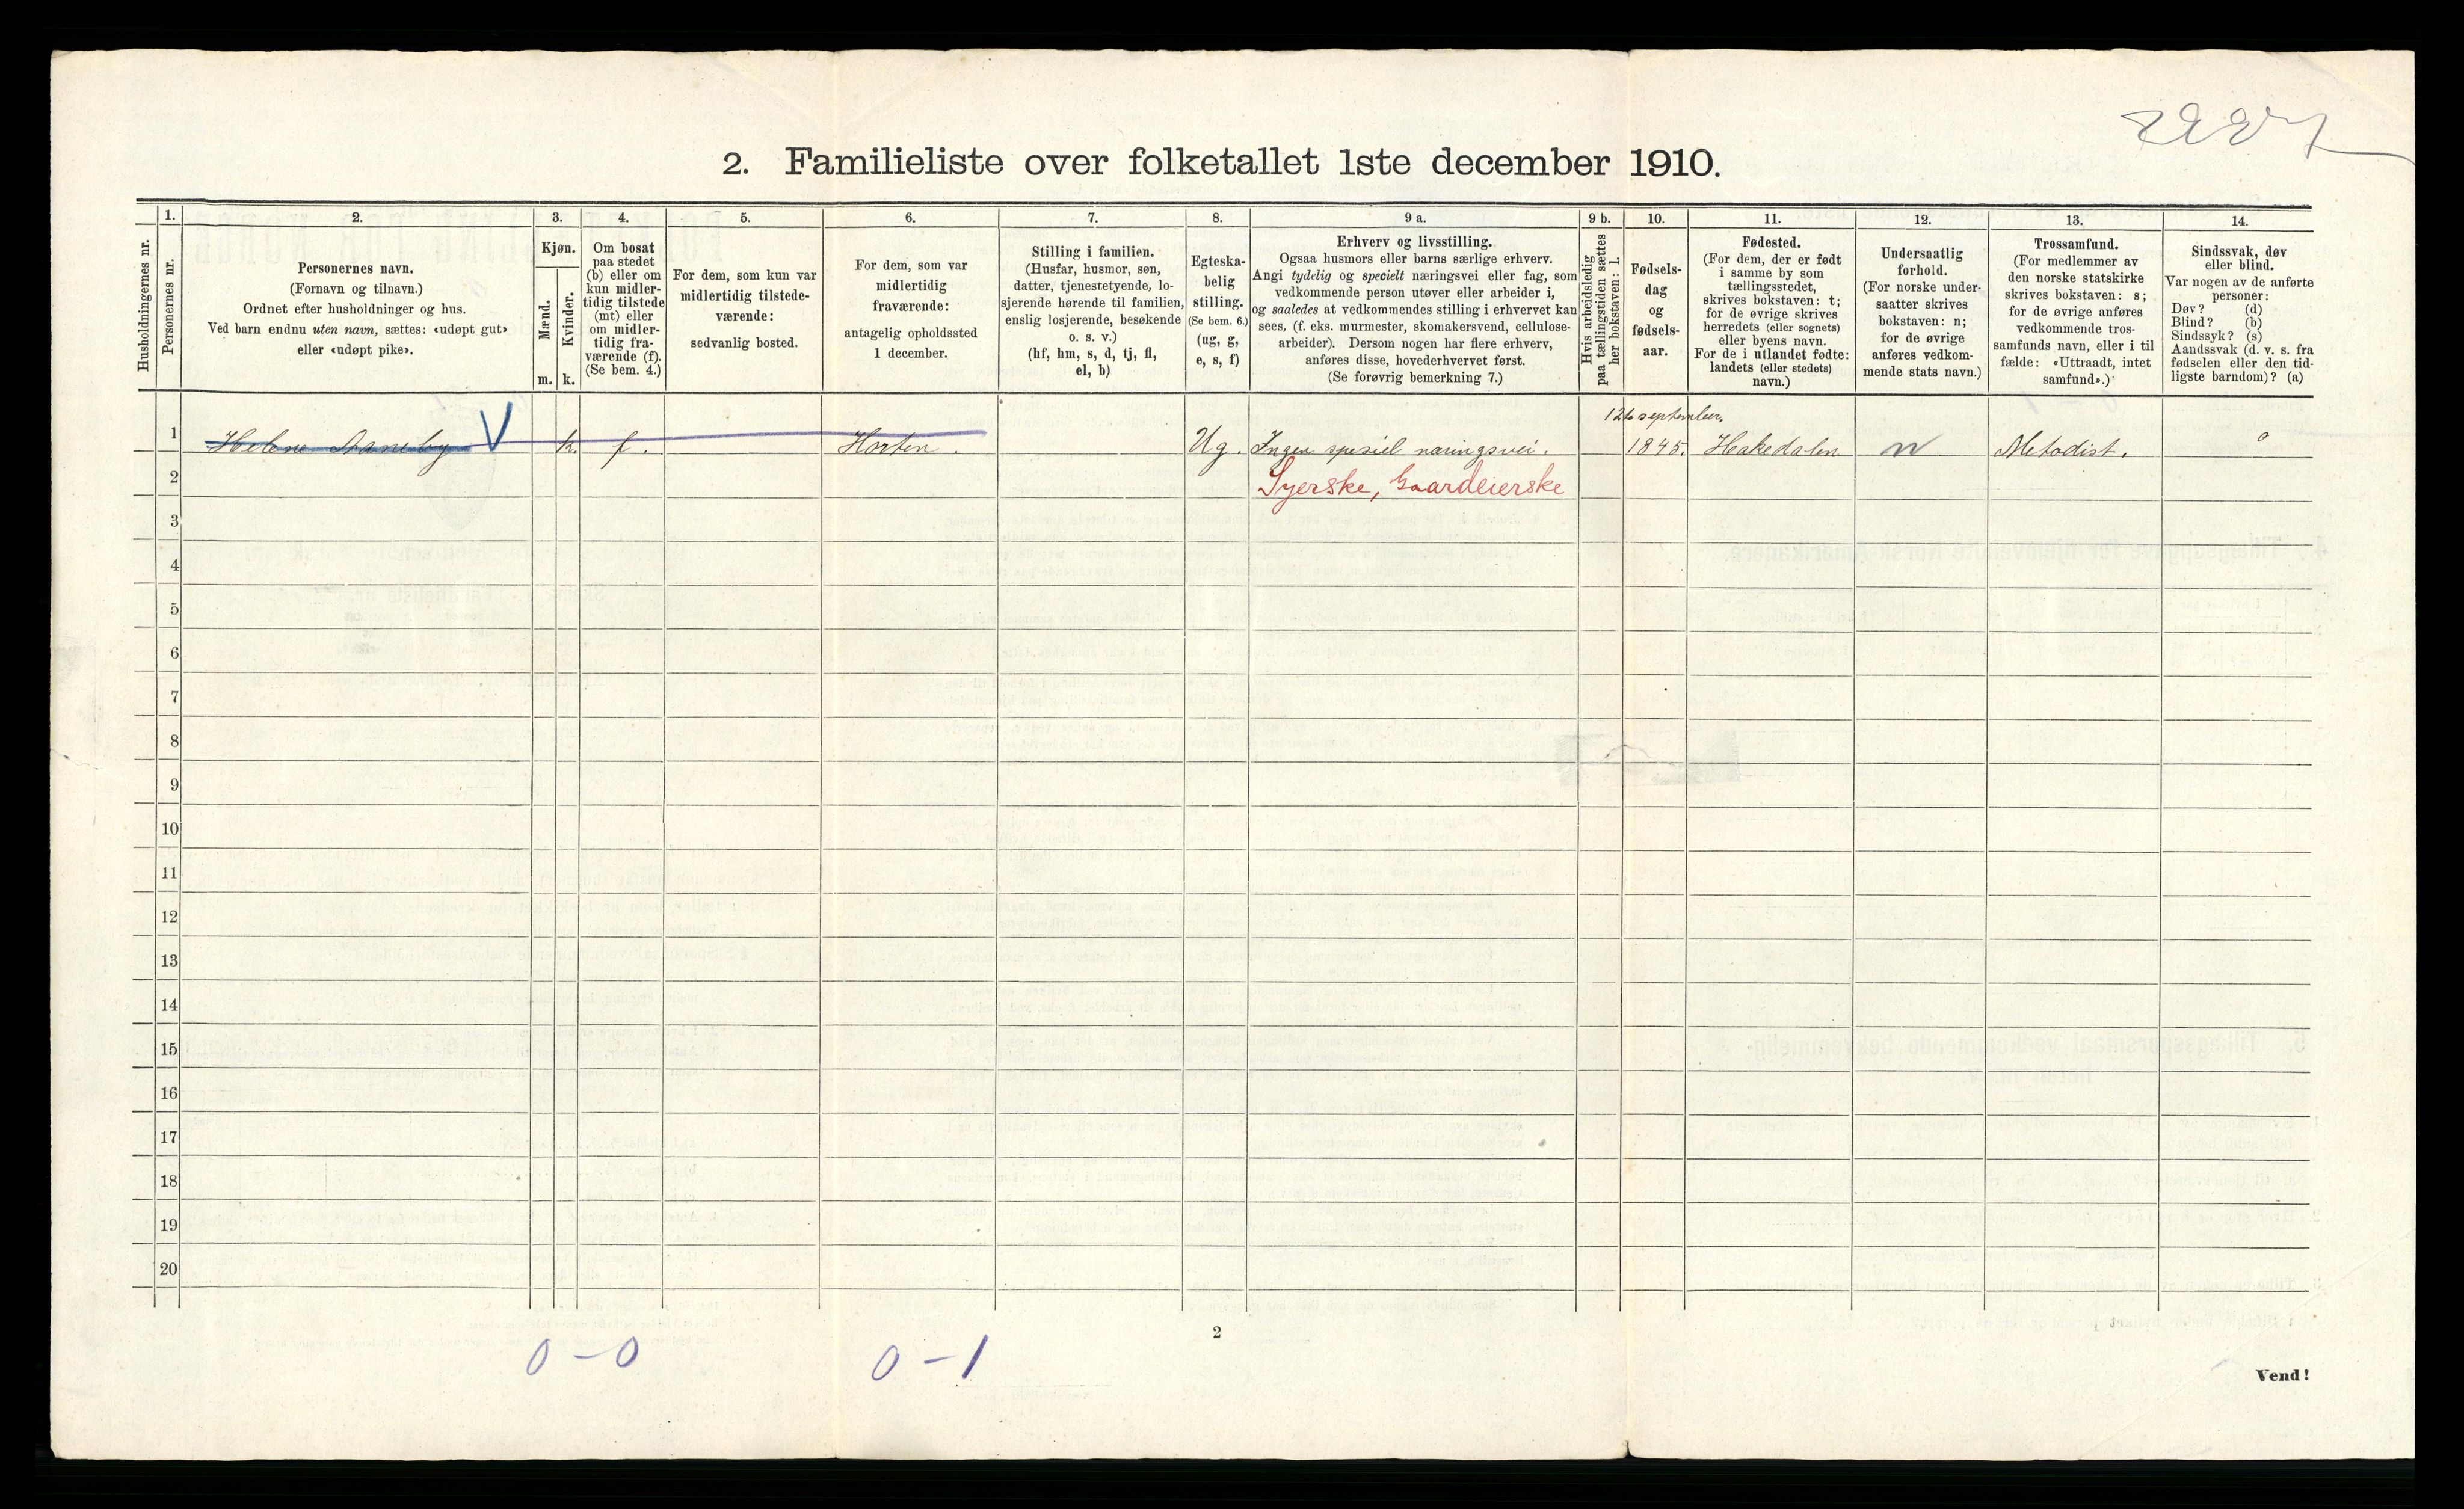 2. Familieliste over folketallet 1ste december 1910.
Husholdningernes nr.
1.
Personernes nr.
2.
Personernes navn.
(Fornavn og tilnavn.)
Ordnet efter husholdninger og hus.
Ved barn endnu uten navn, sættes: «udøpt gut»
eller «udøpt pike».
3.
Kjøn.
Mænd.
Kvinder.
m.
k.
4.
Om bosat
paa stedet
(b) eller om
kun midler-
tidig tilstede
(mt) eller
om midler-
tidig fra-
værende (f).
(Se bem. 4.)
5.
For dem, som kun var
midlertidig tilstede-
værende:
sedvanlig bosted.
6.
For dem, som var
midlertidig
fraværende:
antagelig opholdssted
1 december.
7.
Stilling i familien.
(Husfar, husmor, søn,
datter, tjenestetyende, lo-
sjerende hørende til familien,
enslig losjerende, besøkende
o. s. v.)
(hf, hm, s, d, tj, fl,
el, b)
8.
Egteska-
belig
stilling.
(Se bem. 6.)
(ug, g,
e, s, f)
9 a.
Erhverv og livsstilling.
Ogsaa husmors eller barns særlige erhverv.
Angi tydelig og specielt næringsvei eller fag, som
vedkommende person utøver eller arbeider i,
og saaledes at vedkommendes stilling i erhvervet kan
sees, (f. eks. murmester, skomakersvend, cellulose-
arbeider). Dersom nogen har flere erhverv,
anføres disse, hovederhvervet først.
(Se forøvrig bemerkning 7.)
9 b.
Hvis arbeidsledig
paa tællingstiden sættes
her bokstaven: l.
10.
Fødsels-
dag
og
fødsels-
aar.
11.
Fødested.
(For dem, der er født
i samme by som
tællingsstedet,
skrives bokstaven: t;
for de øvrige skrives
herredets (eller sognets)
eller byens navn.
For de i utlandet fødte:
landets (eller stedets)
navn.)
12.
Undersaatlig
forhold.
(For norske under-
saatter skrives
bokstaven: n;
for de øvrige
anføres vedkom-
mende stats navn.)
13.
Trossamfund.
(For medlemmer av
den norske statskirke
skrives bokstaven: s;
for de øvrige anføres
vedkommende tros-
samfunds navn, eller i til
fælde: «Uttraadt, intet
samfund».)
14.
Sindssvak, døv
eller blind.
Var nogen av de anførte
personer:
Døv? (d)
Blind? (b)
Sindssyk? (s)
Aandssvak (d. v. s. fra
fødselen eller den tid-
ligste barndom)? (a)
1 Helene Aaneby V k. f. Horten. Ug. Ingen spesiel næringsvei. 12te september. 1845. Hakedalen n Metodist. 0
2 Syerske, Gaardeierske
3
4
5
6
7
8
9
10
11
12
13
14
15
16
17
18
19
20
0 – 0
0 – 1
2
Vend!